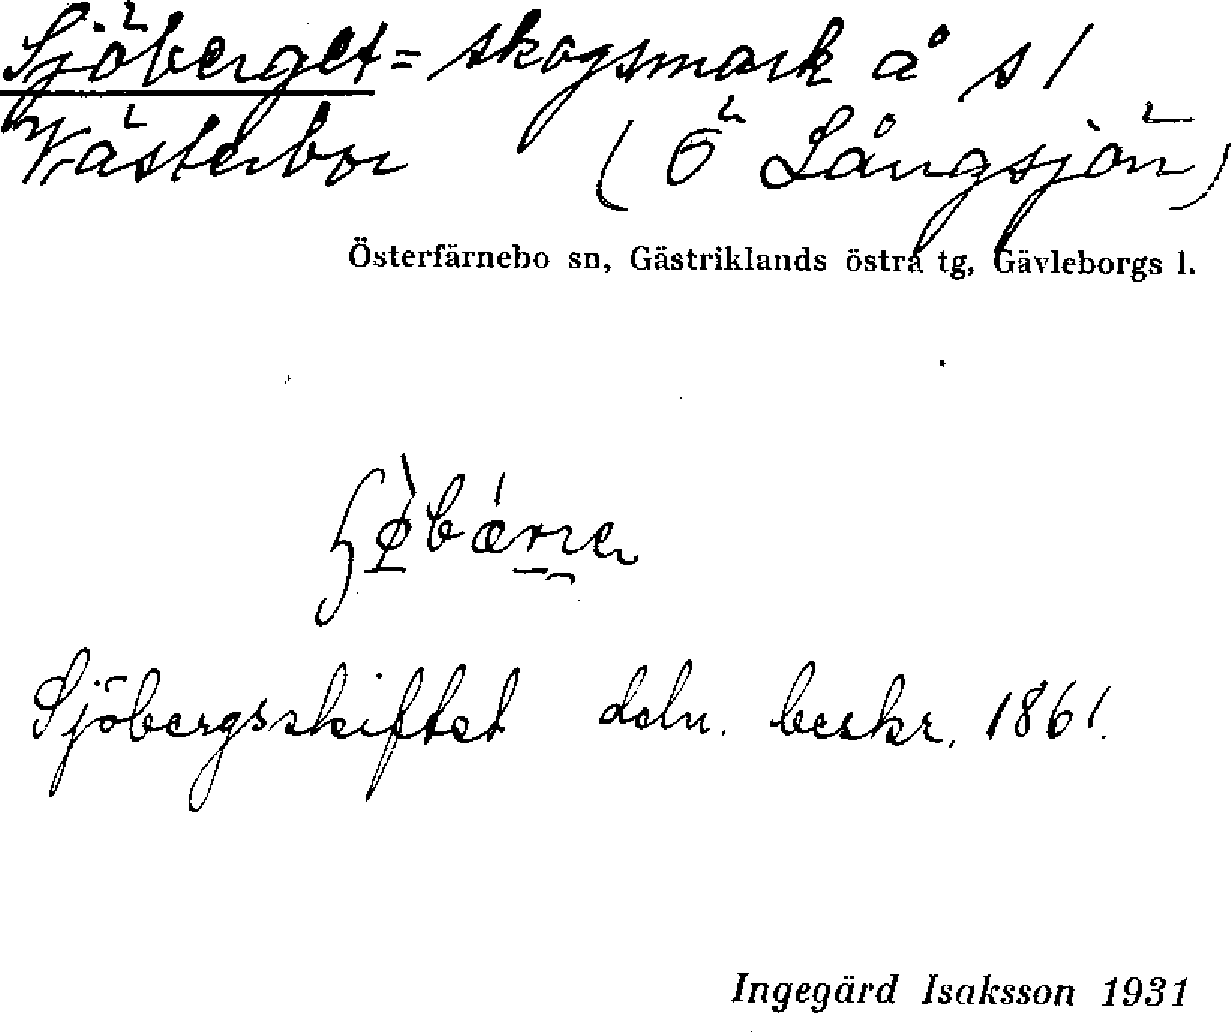 Sjöberget = skogsmark å s/
Västerbor (Ö Långsjön)
Österfärnebo sn, Gästriklands östra tg, Gävleborgs l.
Sjöbergsskiftet deln. beskr. 1861.
Ingegärd Isaksson 1931